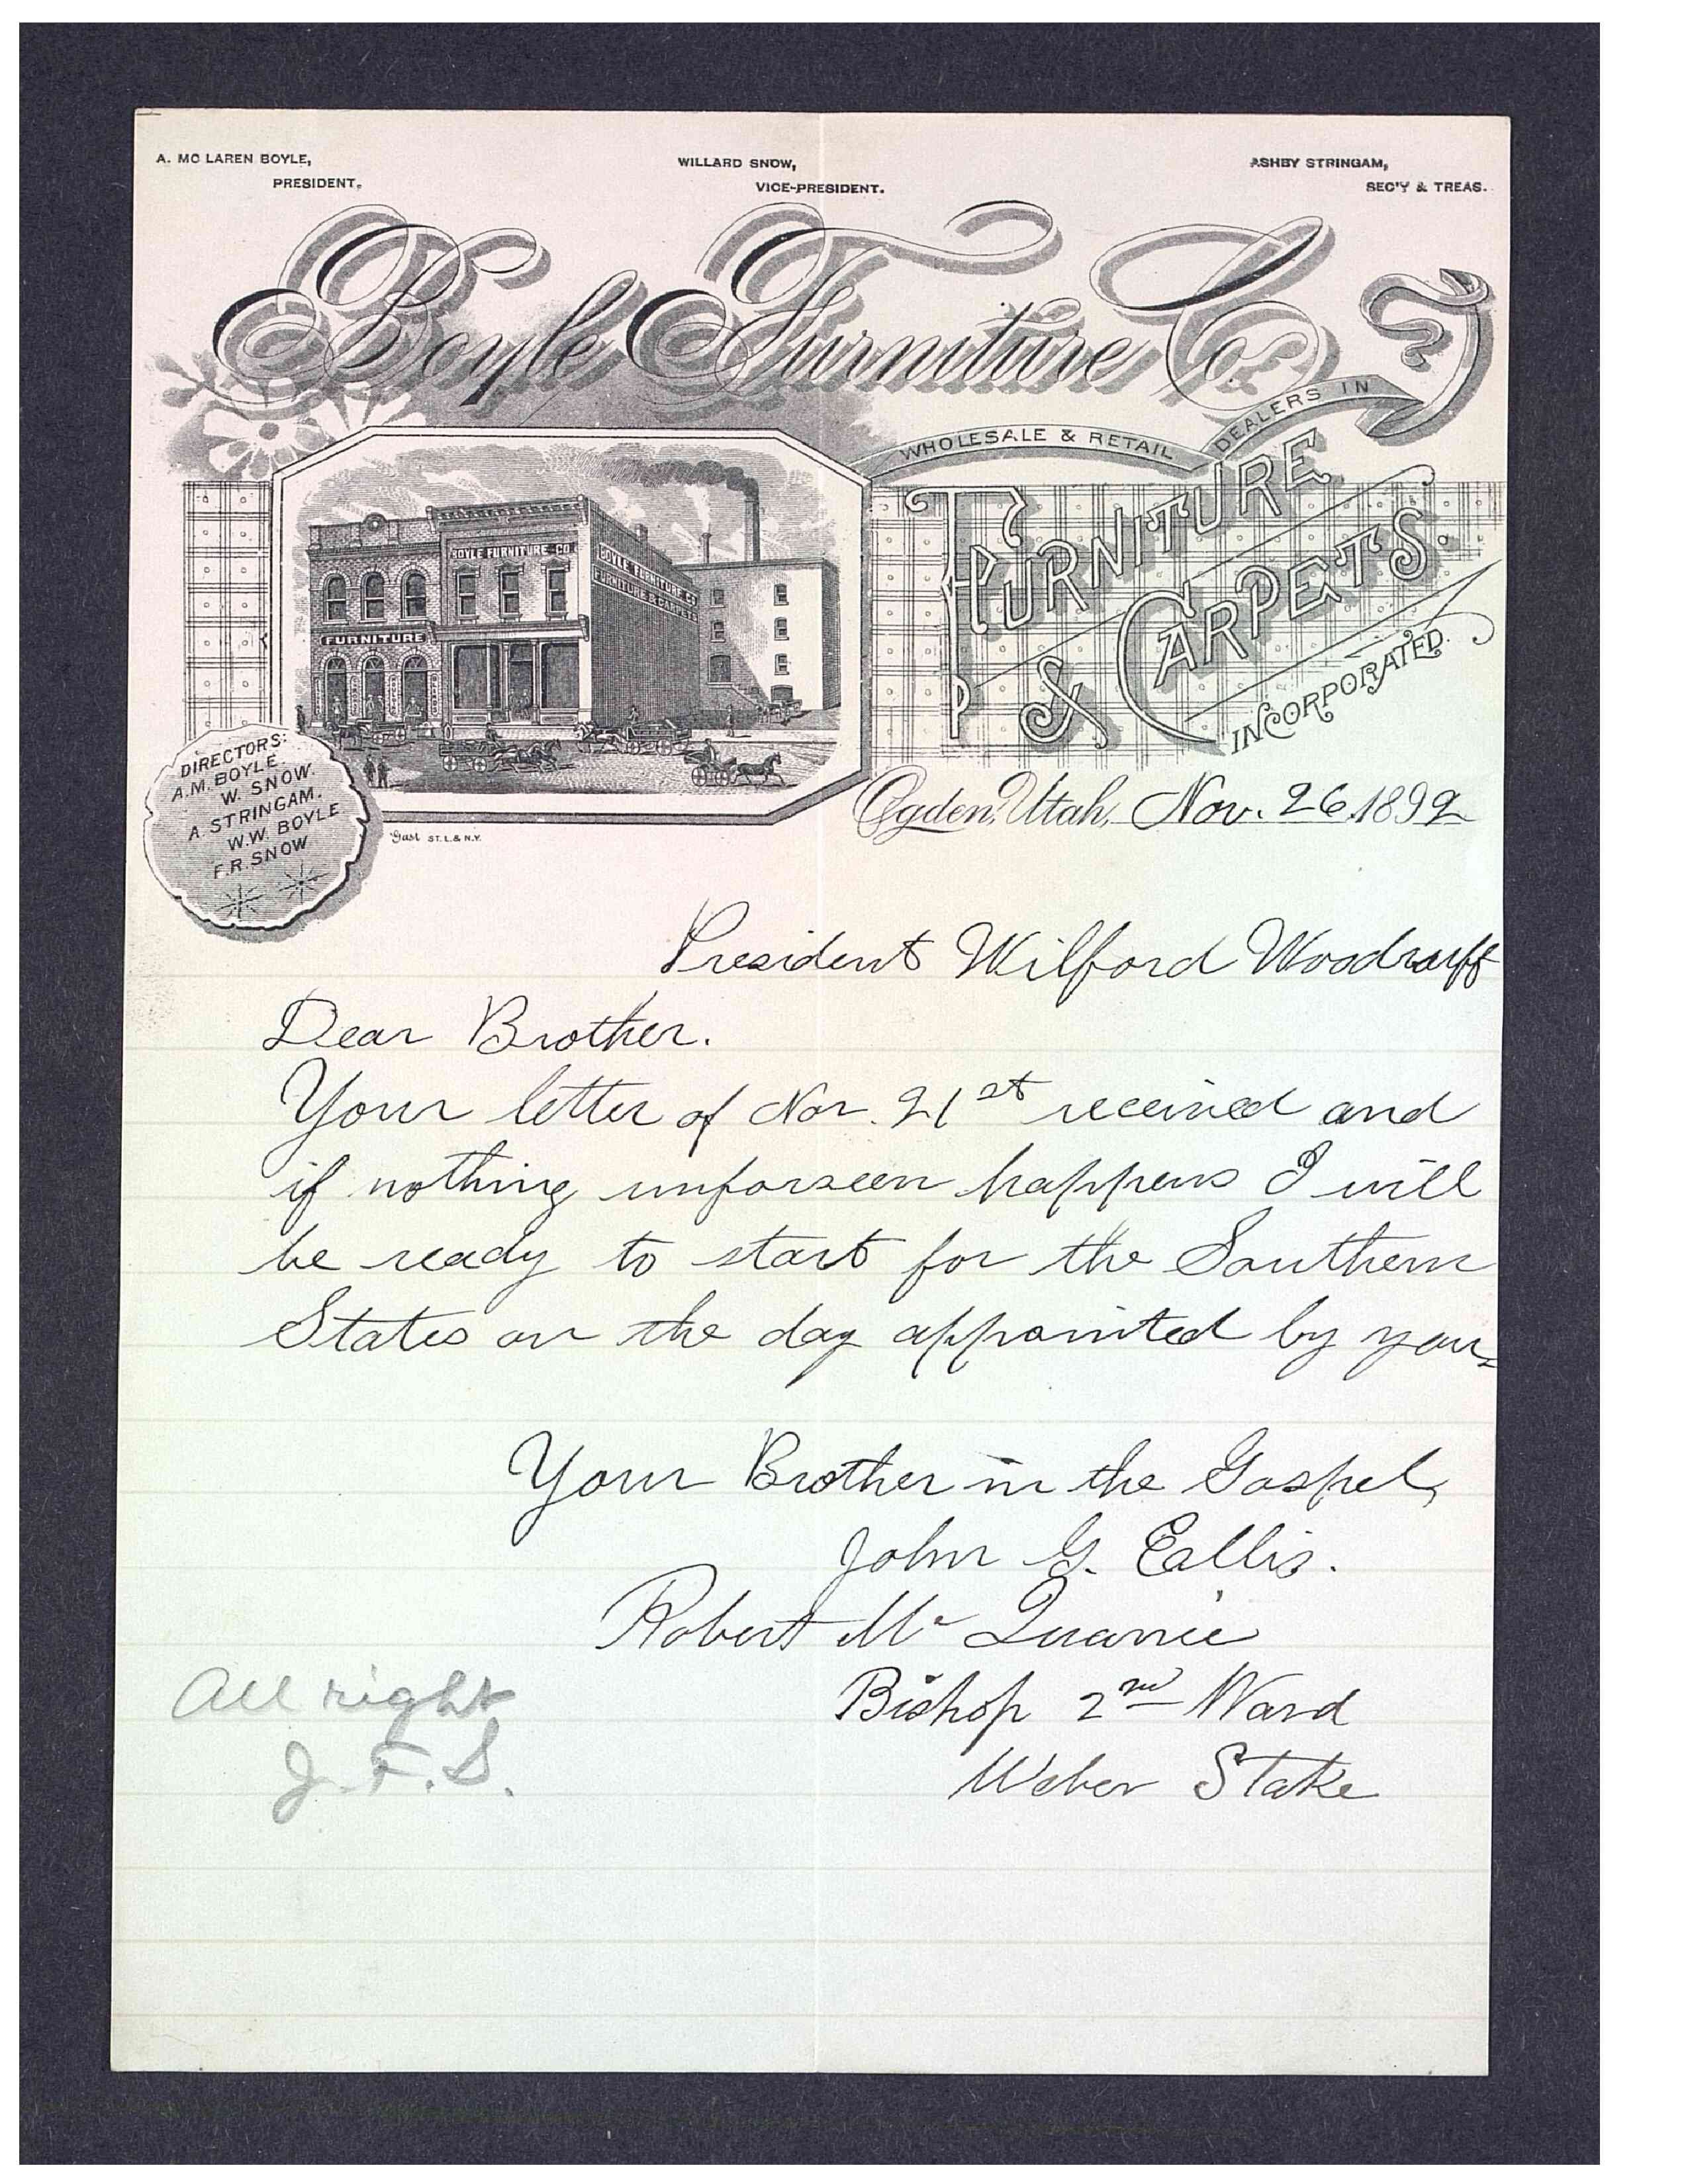 A. MC LAREN BOYLE,
PRESIDENT.
WILLARD SNOW,
VICE-PRESIDENT.
ASHBY STRINGAM,
SEC'Y & TREAS.
Boyle Furniture Co.
WHOLESALE & RETAIL DEALERS IN
FURNITURE
& CARPETS.
INCORPORATED.
BOYLE FURNITURE CO.
BOYLE FURNITURE CO
FURNITURE & CARPETS
FURNITURE
DIRECTORS:
A.M. BOYLE.
W. SNOW.
A STRINGAM.
W.W. BOYLE
F.R. SNOW
Gast ST. L. & N.Y.
Ogden, Utah, Nov. 26 1892
President Wilford Woodruff
Dear Brother.
Your letter of Nov. 21st received and
if nothing unforseen happens I will
be ready to start for the Southern
States on the day appointed by you.
Your Brother in the Gospel,
John G. Eallis.
Robert Mc Quarrie
Bishop 2nd Ward
Weber Stake
All right
J. F. S.